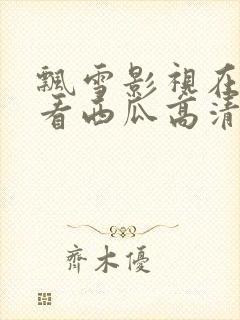 飄雪影視在
看西瓜高清
齊木優